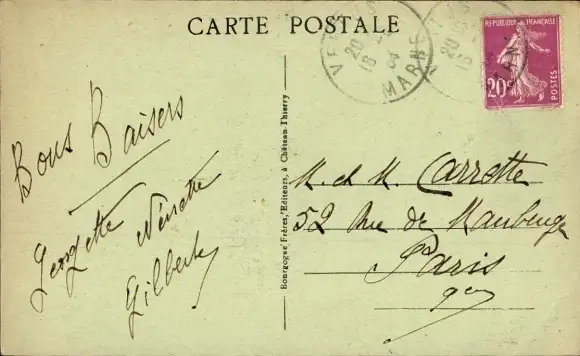 CARTE POSTALE
REPUBLIQUE FRANÇAISE
20c
POSTES
MARNE
20
16
Bons Baisers
Georgette Nénette
Gilberte
Bourgogne Frères, Editeurs, à Château-Thierry
M. et M. Carrette
52 Rue de Maubeuge
Paris
9e